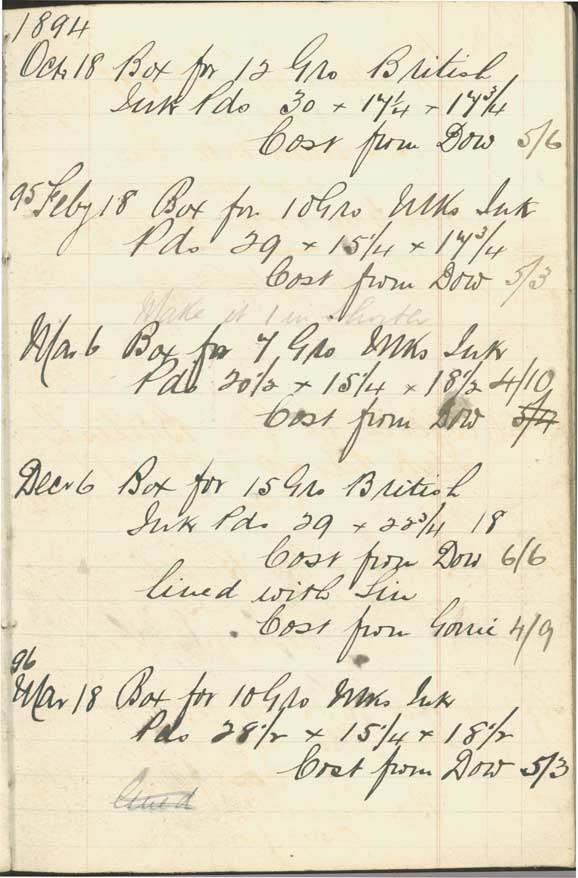 1894
Octr 18 Box for 12 Gro British
Ink Pds 30 x 17 1/4 x 17 3/4
Cost from Dow 5/6
95 Feby 18 Box for 10 Gro Mks Ink
Pds 29 x 15 1/4 x 17 3/4
Cost from Dow 5/3
Make it 1 in shorter
Mar 6 Box for 7 Gro Mks Ink
Pds 20 1/2 x 15 1/4 x 18 1/2 4/10
Cost from Dow 5/4
Decr 6 Box for 15 Gro British
Ink Pds 29 x 22 3/4 18
Cost from Dow 6/6
lined with Tin
Cost from Gorrie 4/9
96
Mar 18 Box for 10 Gro Mks Ink
Pds 28 1/2 x 15 1/4 x 18 1/2
Cost from Dow 5/3
lined